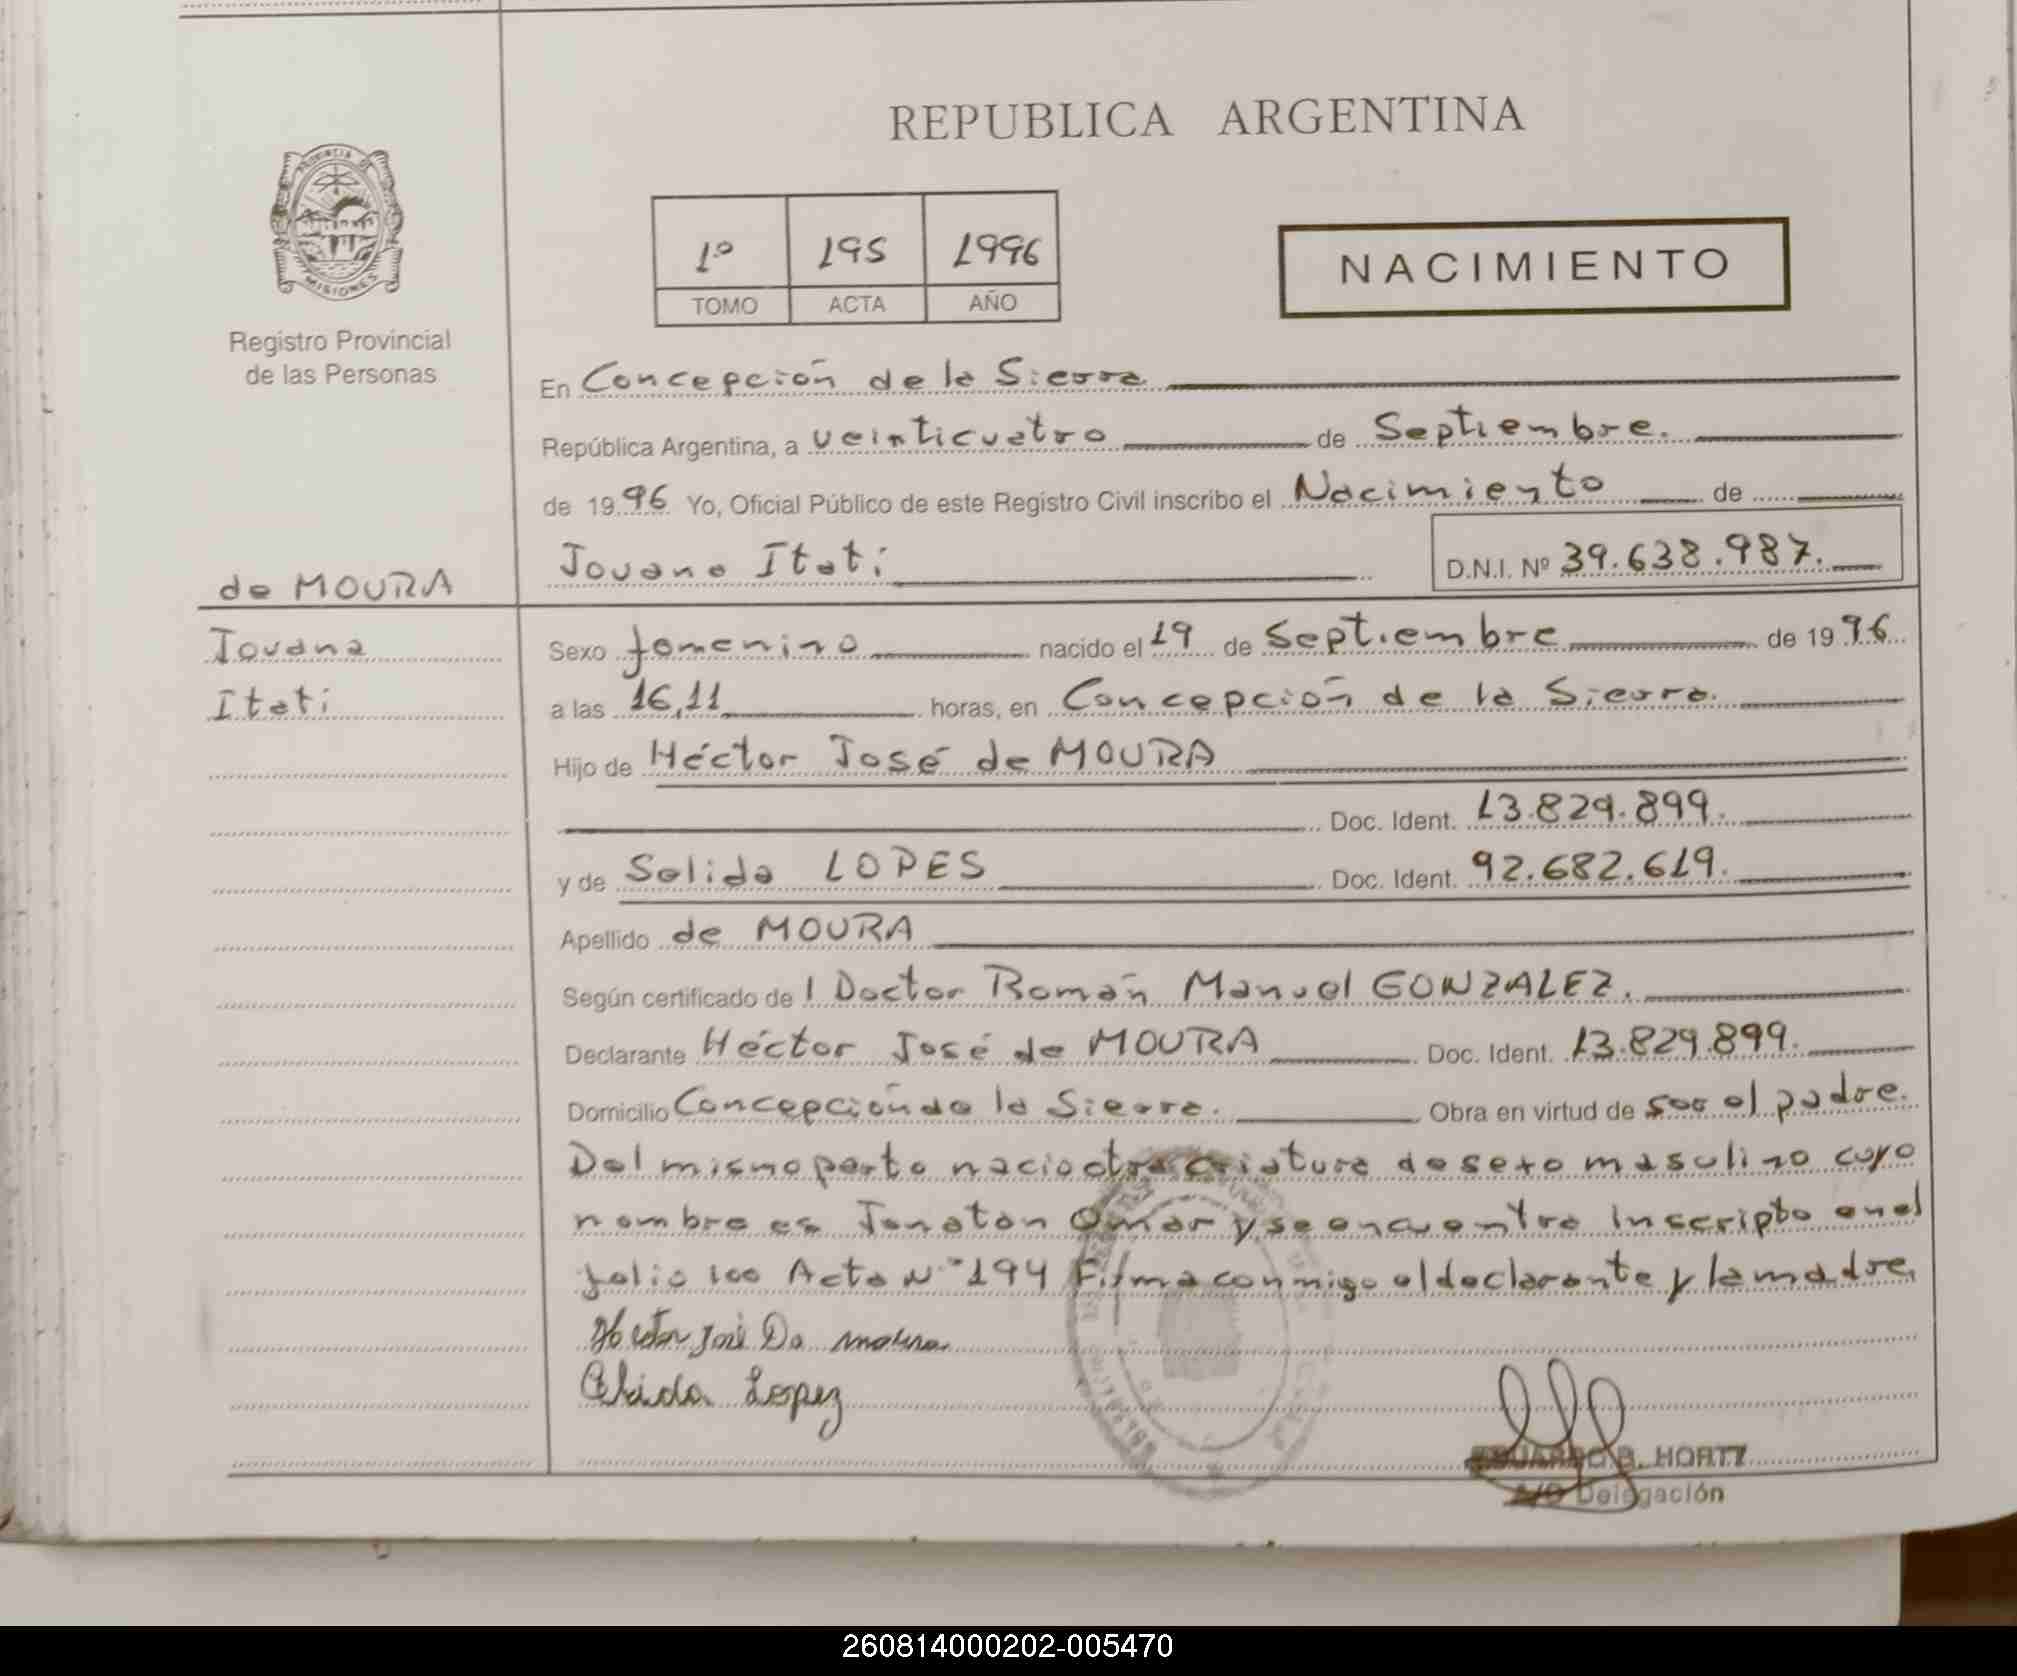 REPUBLICA ARGENTINA
PROVINCIA DE
MISIONES
Registro Provincial
de las Personas
1º 195 1996
TOMO ACTA AÑO
NACIMIENTO
En Concepción de la Sierra
República Argentina, a veinticuatro de Septiembre.
de 19 96 Yo, Oficial Público de este Registro Civil inscribo el Nacimiento de
Jovana Itati D.N.I. Nº 39.638.987.
de MOURA
Jovana
Itati
Sexo femenino nacido el 19 de Septiembre de 19 96
a las 16,11 horas, en Concepción de la Sierra.
Hijo de Héctor José de MOURA
Doc. Ident. 13.829.899.
y de Solida LOPES Doc. Ident. 92.682.619.
Apellido de MOURA
Según certificado de l Doctor Román Manuel GONZALEZ.
Declarante Héctor José de MOURA Doc. Ident. 13.829.899.
Domicilio Concepción de la Sierra. Obra en virtud de ser el padre.
Del mismo parto nacio otra criatura de sexo masculino cuyo
nombre es Jonatan Omar y se encuentra inscripto en el
folio 100 Acta Nº 194 Firma conmigo el declarante y la madre
Hector José De Moura
Lopez
EDUARDO B. HORTT
A/C Delegación
260814000202-005470